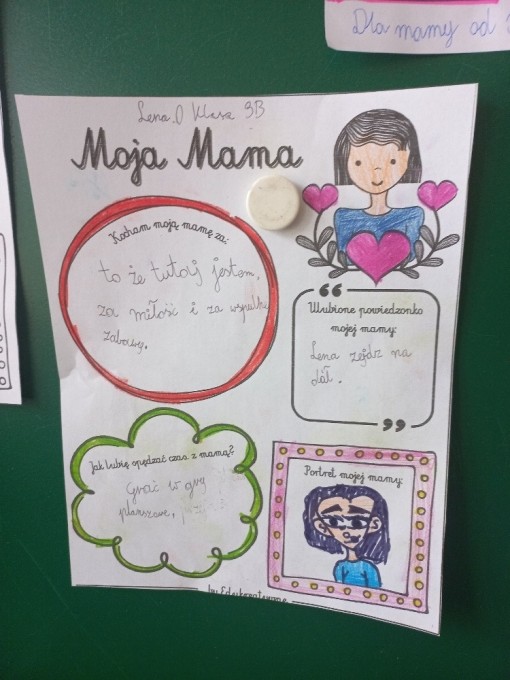 Dla mamy od
Lena O Klasa 3B
Moja Mama
Kocham moją mamę za:
to że tutaj jestem,
za miłość i za wspólne
zabawy.
Ulubione powiedzonko
mojej mamy:
Lena zejdz na
dół.
Jak lubię spędzać czas z mamą?
Grać w gry
planszowe,
Portret mojej mamy:
by Edukreatywne